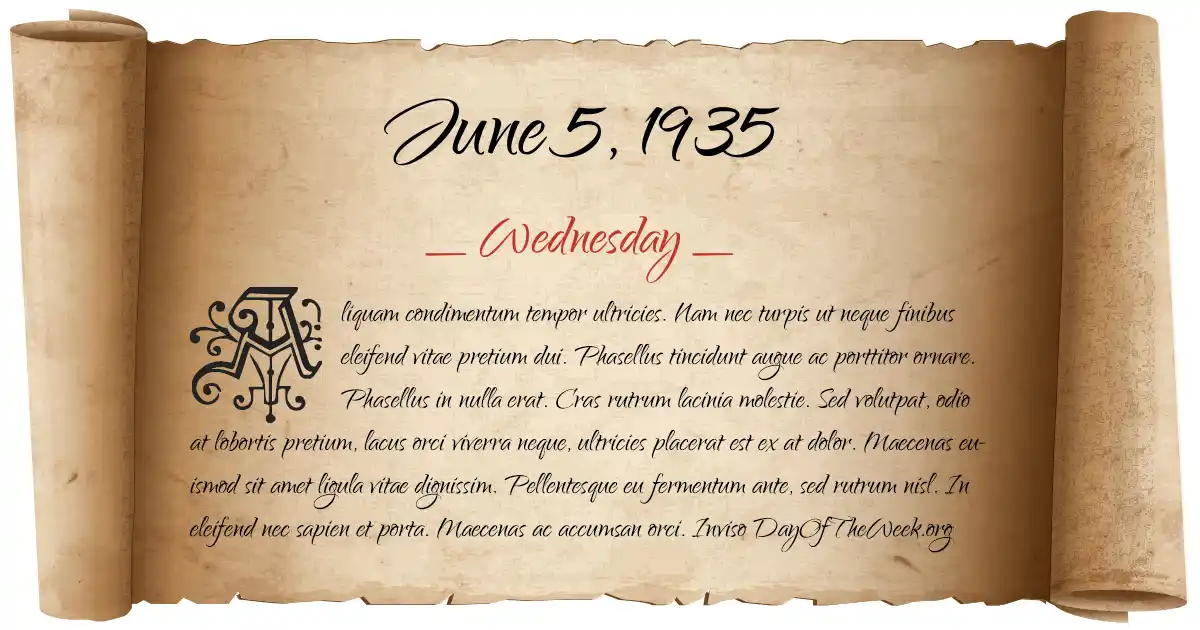 June 5, 1935
__ Wednesday __
Aliquam condimentum tempor ultricies. Nam nec turpis ut neque finibus
eleifend vitae pretium dui. Phasellus tincidunt augue ac porttitor ornare.
Phasellus in nulla erat. Cras rutrum lacinia molestie. Sed volutpat, odio
at lobortis pretium, lacus orci viverra neque, ultricies placerat est ex at dolor. Maecenas eu-
ismod sit amet ligula vitae dignissim. Pellentesque eu fermentum ante, sed rutrum nisl. In
eleifend nec sapien et porta. Maecenas ac accumsan orci. Inviso DayOfTheWeek.org